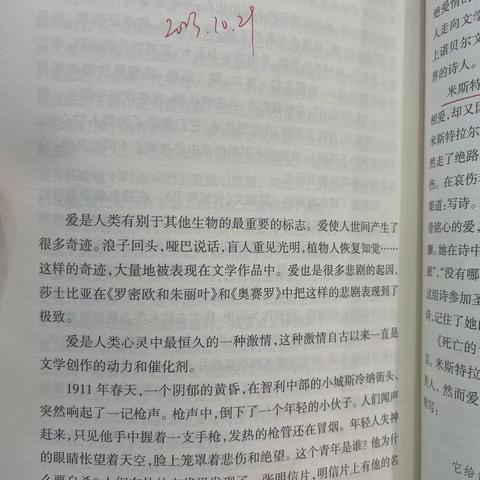 2013.10.29
爱是人类有别于其他生物的最重要的标志。爱使人世间产生了
很多奇迹。浪子回头，哑巴说话，盲人重见光明，植物人恢复知觉……
这样的奇迹，大量地被表现在文学作品中。爱也是很多悲剧的起因，
莎士比亚在《罗密欧和朱丽叶》和《奥赛罗》中把这样的悲剧表现到了
极致。
爱是人类心灵中最恒久的一种激情，这种激情自古以来一直是
文学创作的动力和催化剂。
1911年春天，一个阴郁的黄昏，在智利中部的小城斯冷纳街头，
突然响起了一记枪声。枪声中，倒下了一个年轻的小伙子。人们闻声
赶来，只见他手中握着一支手枪，发热的枪管还在冒烟。年轻人失神
的眼睛怅望着天空，脸上笼罩着悲伤和绝望。这个青年是谁？他为什
一张明信片，明信片上有他的名
人走向文学
上诺贝尔文
界的诗人。
米斯特
相爱，却又因
米斯特拉尔
然走了绝路
伤。在哀伤
渠道：写诗。
骨铭心的爱，
她在诗中
眠”，“没有哪
这组诗参加圣
诗，记住了她
《死亡的
言。米斯特拉
责人。然而爱
样写：
它给